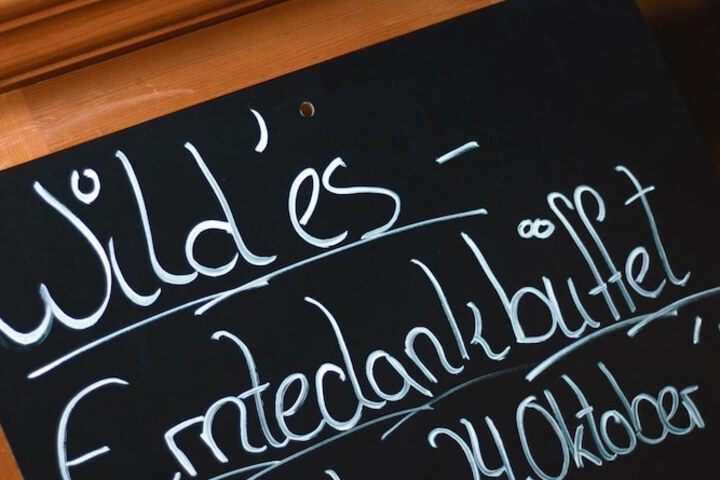 Wild'es -
Erntedankbüffet
24. Oktober